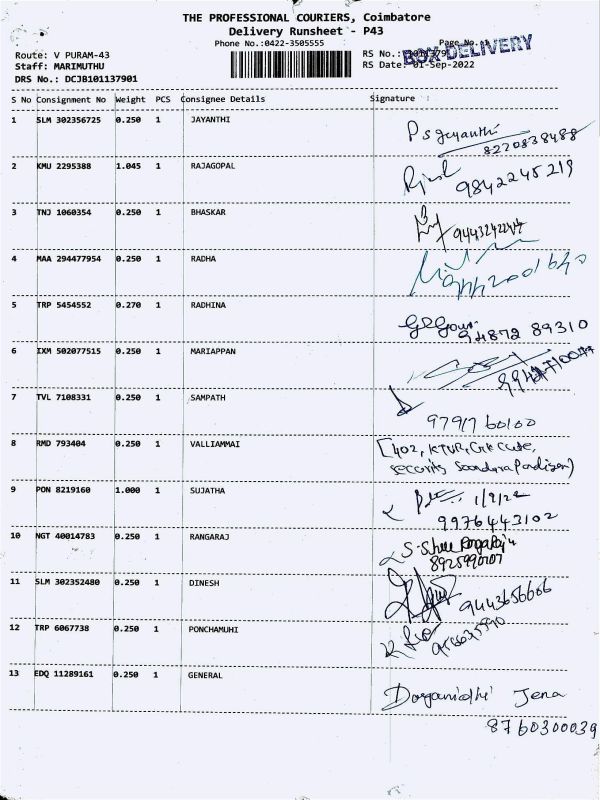 THE PROFESSIONAL COURIERS, Coimbatore
Delivery Runsheet - P43
Phone No.:0422-3505555 Page No.:1
Route: V PURAM-43
RS No.:
BOX DELIVERY
Staff: MARIMUTHU
RS Date: 01-Sep-2022
DRS No.: DCJB101137901
S No Consignment No Weight PCS Consignee Details Signature :
1 SLM 302356725 0.250 1 JAYANTHI
8220838488
2 KMU 2295388 1.045 1 RAJAGOPAL
9842245219
3 TNJ 1060354 0.250 1 BHASKAR
4 MAA 294477954 0.250 1 RADHA
5 TRP 5454552 0.270 1 RADHINA
94872 89310
6 IXM 502077515 0.250 1 MARIAPPAN
7 TVL 7108331 0.250 1 SAMPATH
97917 60100
8 RMD 793404 0.250 1 VALLIAMMAI
[402, KTVR,
security Soundara Pandiyan)
9 PON 8219160 1.000 1 SUJATHA
1/9/22
9976443102
10 NGT 40014783 0.250 1 RANGARAJ
S. Shree
11 SLM 302352480 0.250 1 DINESH
9443656666
12 TRP 6067738 0.250 1 PONCHAMUHI
13 EDQ 11289161 0.250 1 GENERAL
Jena
8760300039